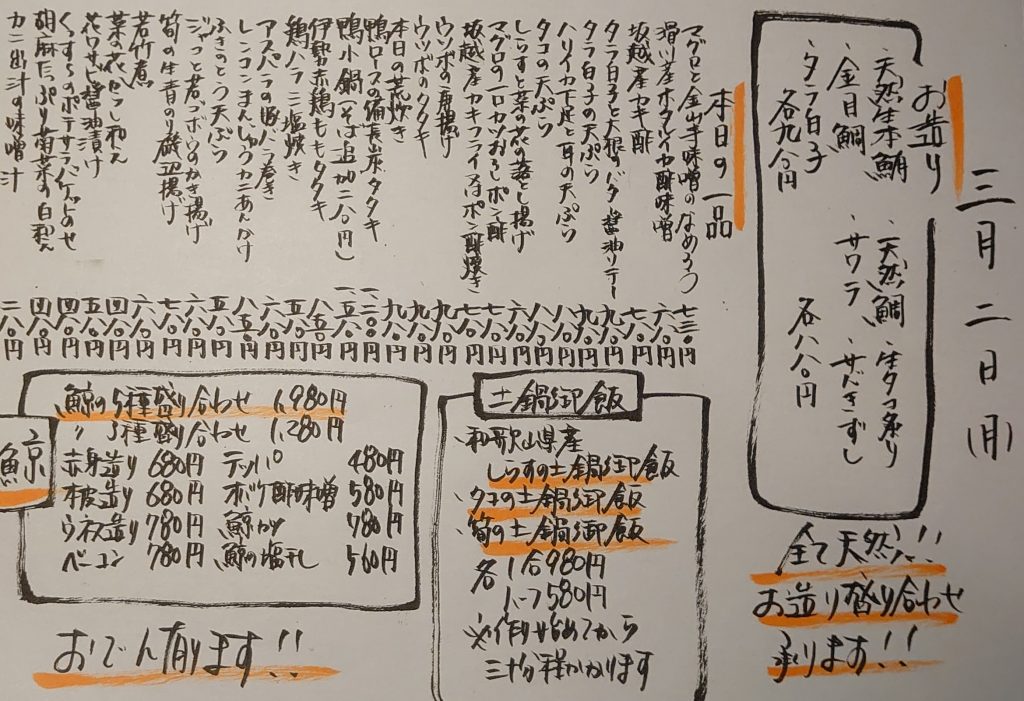 三月二日(月)
お造り
・天然生本鮪
・金目鯛
・タラ白子
各九八〇円
・天然鯛
・サワラ
・生タコ炙り
・サバきずし
各八八〇円
全て天然!!
お造り盛り合わせ
承ります!!
本日の一品
マグロと金山寺味噌のなめろう 七三〇円
滑川産ホタルイカ酢味噌 六八〇円
坂越産カキ酢 七八〇円
タラ白子と大根のバター醤油ソテー 九八〇円
タラ白子の天ぷら 九八〇円
ハリイカ下足と耳の天ぷら 八八〇円
タコの天ぷら 八八〇円
しらすと菜の花の落とし揚げ 六八〇円
マグロの一口カツおろしポン酢 七八〇円
坂越産カキフライ又はポン酢焼き 七八〇円
ウツボの唐揚げ 九八〇円
ウツボのタタキ 九八〇円
本日の荒炊き 九八〇円
鴨ロースの備長炭タタキ 一二〇〇円
鴨小鍋(そば追加二八〇円) 一五八〇円
伊勢赤鶏ももタタキ 八五〇円
鶏ハラミ塩焼き 五八〇円
アスパラの豚バラ巻き 六八〇円
レンコンまんじゅうカニあんかけ 八五〇円
ふきのとう天ぷら 五八〇円
ジャコと若ゴボウのかき揚げ 六八〇円
筍の生青のり磯辺揚げ 七八〇円
若竹煮 六八〇円
菜の花からし和え 四八〇円
花ワサビ醤油漬け 五八〇円
くちすらのポテサラバケットのせ 四八〇円
胡麻たっぷり菊菜の白和え 四八〇円
カニ出汁の味噌汁 二八〇円
土鍋御飯
・和歌山県産
しらすの土鍋御飯
・タコの土鍋御飯
・筍の土鍋御飯
各 1合980円
ハーフ580円
※作り始めてから
三十分程かかります
鯨
鯨の5種盛り合わせ 1,980円
〃 3種盛り合わせ 1,280円
赤身造り 680円 テッパ 480円
本皮造り 680円 オバケ酢味噌 580円
ウネス造り 780円 鯨カツ 780円
ベーコン 780円 鯨の塩干し 560円
おでん有ります!!